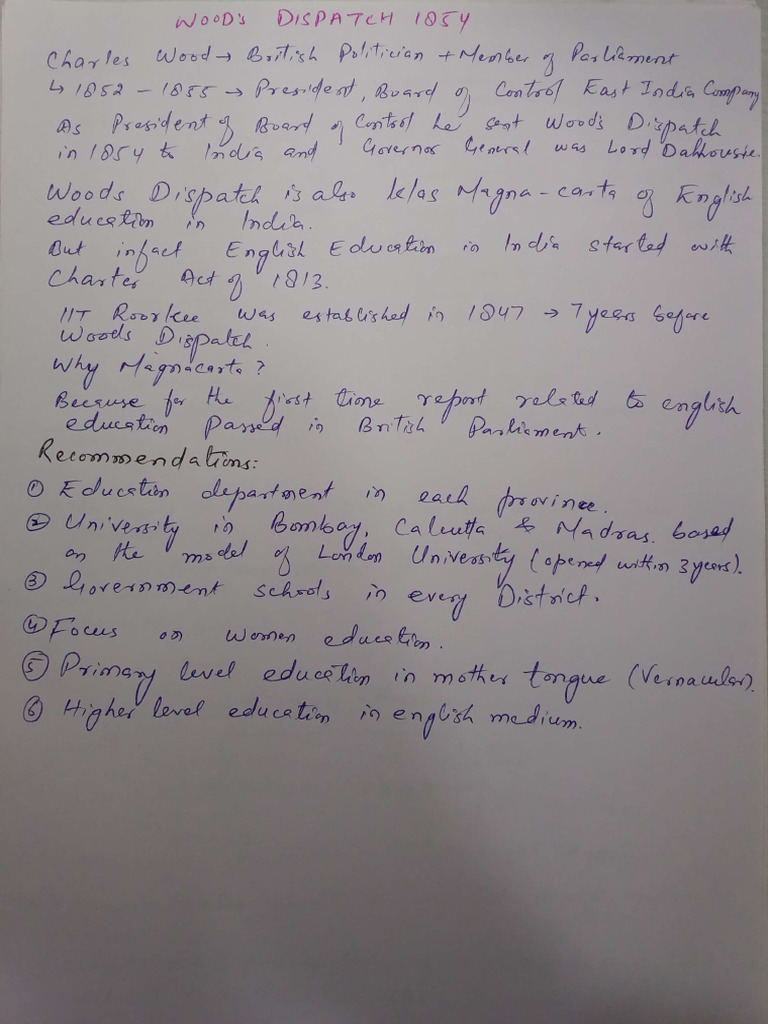 WOOD'S DISPATCH 1854
Charles Wood → British Politician + Member of Parliament
↳ 1852 - 1855 → President, Board of Control East India Company
As President of Board of Control he sent Wood's Dispatch
in 1854 to India and Governor General was Lord Dalhousie.
Woods Dispatch is also k/as Magna-carta of English
education in India.
But infact English Education in India started with
Charter Act of 1813.
IIT Roorkee was established in 1847 → 7 years before
Woods Dispatch.
Why Magnacarta?
Because for the first time report related to english
education passed in British Parliament.
Recommendations:
① Education department in each province.
② University in Bombay, Calcutta & Madras. based
on the model of London University (opened within 3 years).
③ Government schools in every District.
④ Focus on women education.
⑤ Primary level education in mother tongue (Vernacular).
⑥ Higher level education in english medium.